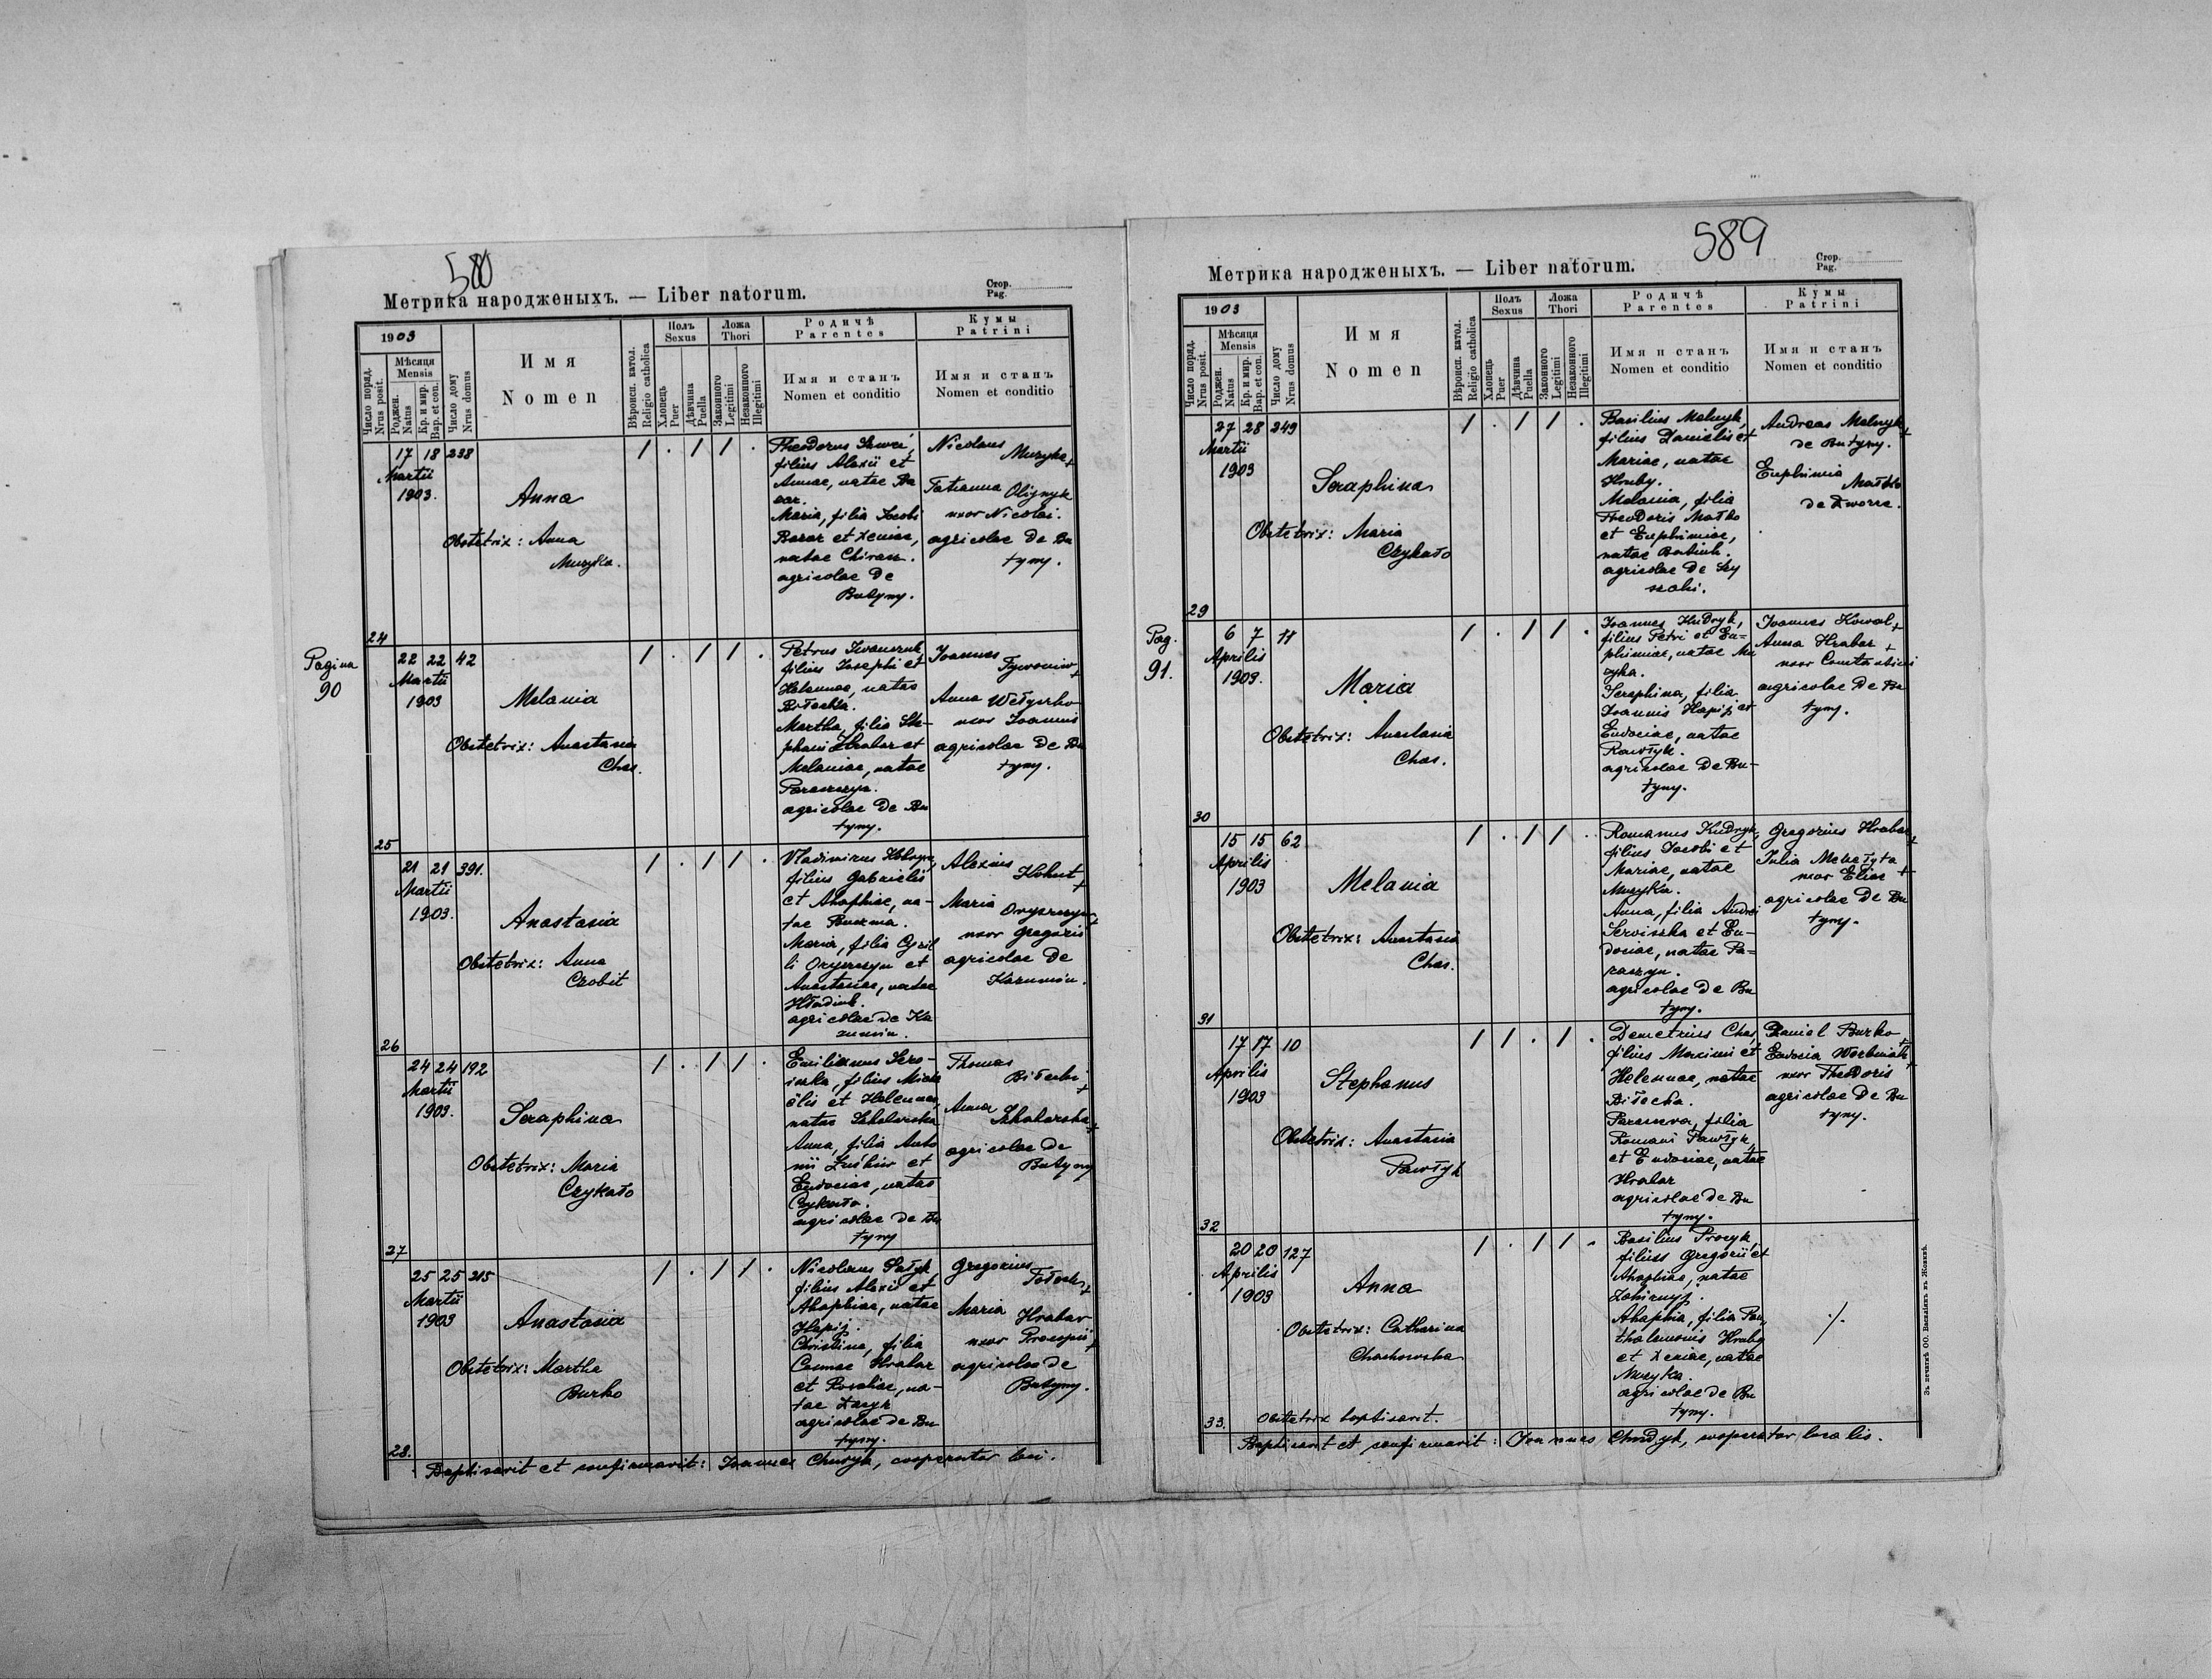 580
Метрика народженыхъ. — Liber natorum.
Стор.
Pag.
1903
Число поряд.
Nrus posit.
Мѣсяця
Mensis
Роджен.
Natus
Кр. и мир.
Bap. et con.
Число дому
Nrus domus
Имя
Nomen
Вѣроисп. катол.
Religio catholica
Полъ
Sexus
Хлопець
Puer
Дѣвчина
Puella
Ложа
Thori
Законного
Legitimi
Незаконного
Illegitimi
Родичѣ
Parentes
Имя и станъ
Nomen et conditio
Кумы
Patrini
Имя и станъ
Nomen et conditio
24
17 18 238
Martii
1903.
Anna
Obstetrix: Anna
Muzyka.
Theodorus
filius Alexii et
Annae, natae Ba
zar.
Maria, filia Jacobi
Bazar et Xeniae,
natae
agricolae de
Butyny.
Nicolaus
Muzyka +
Tatianna Olijnyk
uxor Nicolai.
agricolae de Bu
tyny.
Pagina
90
25
22 22 42
Martii
1903
Melania
Obstetrix: Anastasia
Chas.
Petrus Iwaszczuk,
filius Josephi et
Helennae, natae
Biłocka.
Martha, filia Ste-
phani Hrabar et
Melaniae, natae
Paraszczyn.
agricolae de Bu
tyny.
Joannes
Tywoniw +
Anna Wełyczko
uxor Joannis
agricolae de Bu
tyny.
26
21 21 391.
Martii
1903.
Anastasia
Obstetrix: Anna
Czobit
Vladimirus
filius Gabrielis
et Ahaphiae, na-
tae
Maria, filia Cyril
li Oryszczyn et
Anastasiae, natae
Hładiuk.
agricolae de Ka
zumin.
Alexius
Kohut +
Maria Oryszczyn +
uxor Gregorii
agricolae de
Kazumin.
27
24 24 192
Martii
1903.
Seraphina
Obstetrix: Maria
Czykało
Emilianus Sero-
iczka, filius Micha
ëlis et Helennae,
natae
Anna, filia Anto
nii et
Eudociae, natae
Czykało.
agricolae de Bu
tyny
Thomas
+
Anna
+
agricolae de
Butyny
28.
25 25 215
Martii
1903
Anastasia
Obstetrix: Martha
Burko
Nicolaus Sałyk
filius Alexii et
Ahaphiae, natae
Hapij.
Christina, filia
Cosmae Hrabar
et Rosaliae, na-
tae
agricolae de Bu
tyny.
Gregorius
+
Maria Hrabar
uxor Procopii +
agricolae de
Butyny.
Baptisavit et confirmavit: Joannes Chudyk, cooperator loci.
589
Метрика народженыхъ. — Liber natorum.
Стор.
Pag.
1903
Число поряд.
Nrus posit.
Мѣсяця
Mensis
Роджен.
Natus
Кр. и мир.
Bap. et con.
Число дому
Nrus domus
Имя
Nomen
Вѣроисп. катол.
Religio catholica
Полъ
Sexus
Хлопець
Puer
Дѣвчина
Puella
Ложа
Thori
Законного
Legitimi
Незаконного
Illegitimi
Родичѣ
Parentes
Имя и станъ
Nomen et conditio
Кумы
Patrini
Имя и станъ
Nomen et conditio
29
27 28 249
Martii
1903
Seraphina
Obstetrix: Maria
Czykało
Basilius Melnyk,
filius Danielis et
Mariae, natae
Hruby.
Melania, filia
Theodoris Matko
et Euphimiae,
natae
agricolae de Szy
szaki.
Andreas Melnyk +
de Butyny.
Euphimia
Matko
de Dworce.
Pag.
91.
30
6 7 11
Aprilis
1903.
Maria
Obstetrix: Anastasia
Chas.
Joannes Kudryk,
filius Petri et Eu-
phimiae, natae Mu
zyka.
Seraphina, filia
Joannis Hapij et
Eudociae, natae
Pawłyk.
agricolae de Bu-
tyny.
Joannes Kowal +
Anna Hrabar +
uxor Constantini
agricolae de Bu
tyny.
31
15 15 62
Aprilis
1903
Melania
Obstetrix: Anastasia
Chas.
Romanus Kudryk,
filius Jacobi et
Mariae, natae
Muzyka.
Anna, filia Andrei
Seroiczka et Eu-
dociae, natae Pa-
raszczyn.
agricolae de Bu
tyny.
Gregorius Hrabar +
Julia
uxor Eliae +
agricolae de Bu
tyny.
32
17 17 10
Aprilis
1903
Stephanus
Obstetrix: Anastasia
Pawłyk
Demetrius Chas,
filius Maximi et
Helennae, natae
Biłocka.
Parasceva, filia
Romani Pawłyk,
et Eudociae, natae
Hrabar
agricolae de Bu
tyny.
Daniel Burko +
Eudocia Worbniak +
uxor Theodoris
agricolae de Bu
tyny.
33.
20 20 127
Aprilis
1903
Anna
Obstetrix: Catharina
Chachowska
Obstetrix baptisavit.
Basilius Procyk,
filius Gregorii et
Ahaphiae, natae
Ahaphia, filia Pan
thalemonis Hruby
et Xeniae, natae
Muzyka.
agricolae de Bu
tyny.
./.
Baptisavit et confirmavit: Joannes Chudyk, cooperator localis.
Зъ печатнѣ ОО. Василіянъ въ Жовквѣ.